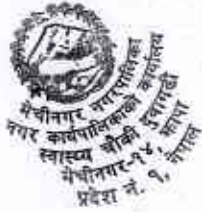 मेचीनगर नगरपालिका
नगर कार्यपालिकाको कार्यालय
स्वास्थ्य चौकी, दुवागढी
मेचीनगर-१४, झापा
प्रदेश नं. १, नेपाल